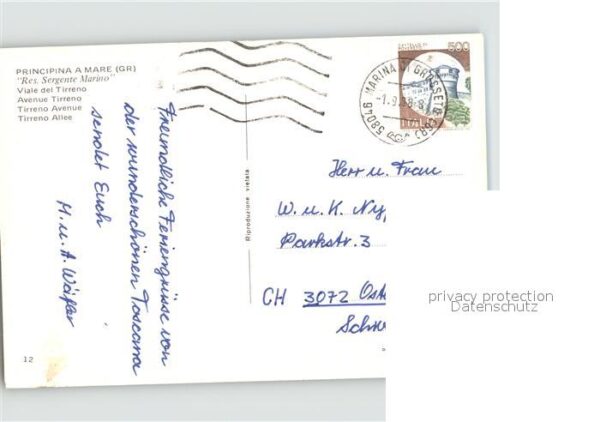 PRINCIPINA A MARE (GR)
"Res. Sergente Marino"
Viale del Tirreno
Avenue Tirreno
Tirreno Avenue
Tirreno Allee
Freundliche Feriengrüsse von
der wunderschönen Toscana
sendet Euch
M. u. A. Wälfler
12
Riproduzione vietata
500
58046 MARINA DI GROSSETO (GR)
Herr u. Frau
W. u. K. Ny
Parkstr. 3
CH 3072 Oste
Schw
privacy protection
Datenschutz